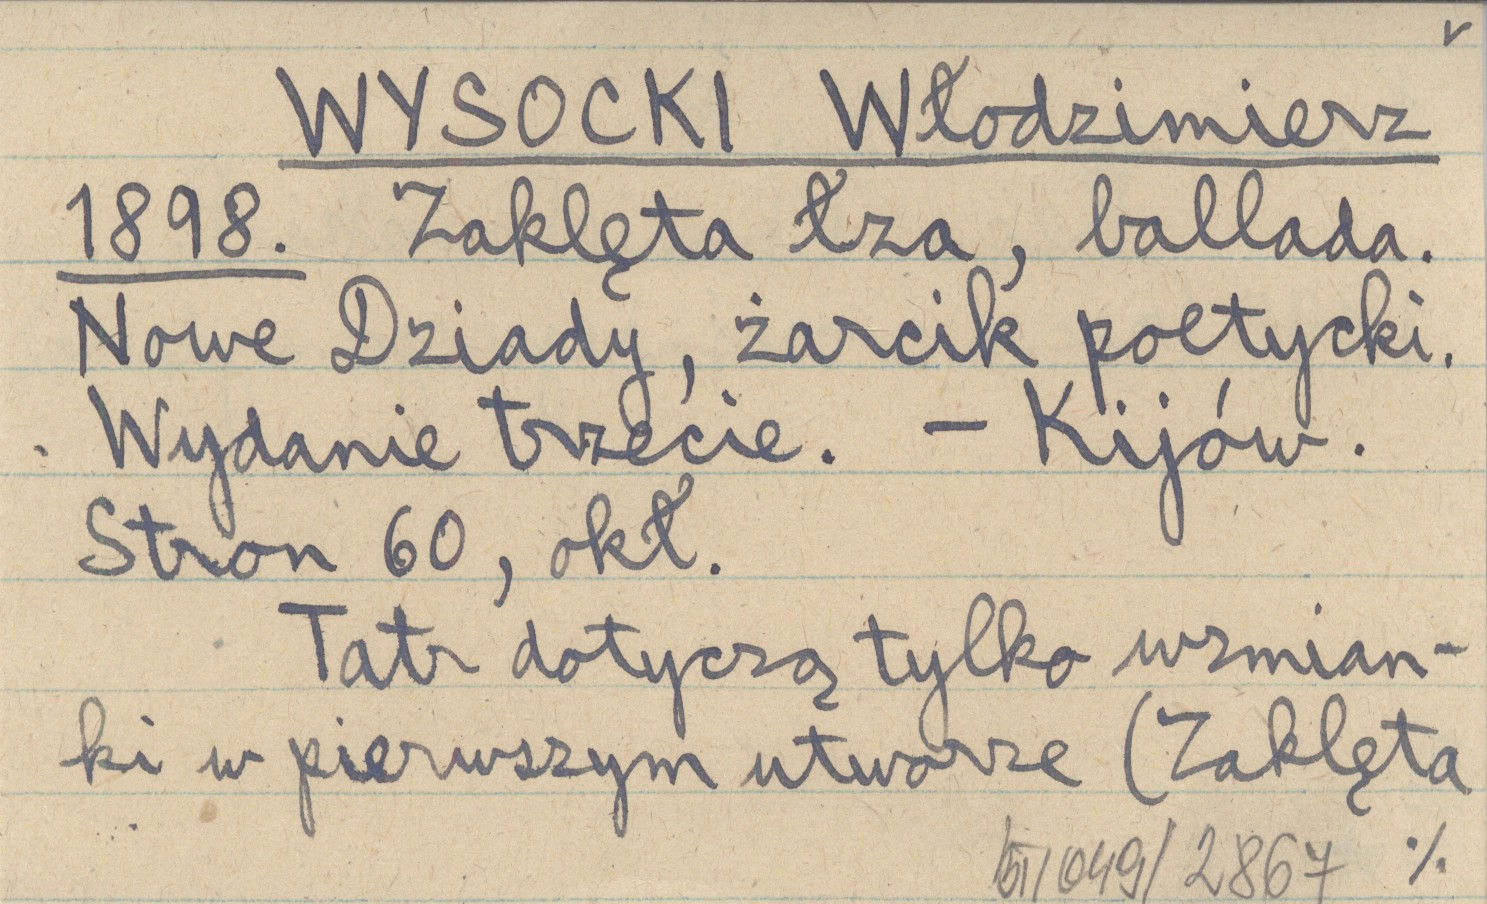 WYSOCKI Włodzimierz
1898. Zaklęta łza, ballada.
Nowe Dziady, żarcik poetycki.
Wydanie trzecie. — Kijów.
Stron 60, okł.
Tatr dotyczą tylko wzmian-
ki w pierwszym utworze (Zaklęta
/049/2867 ·/.